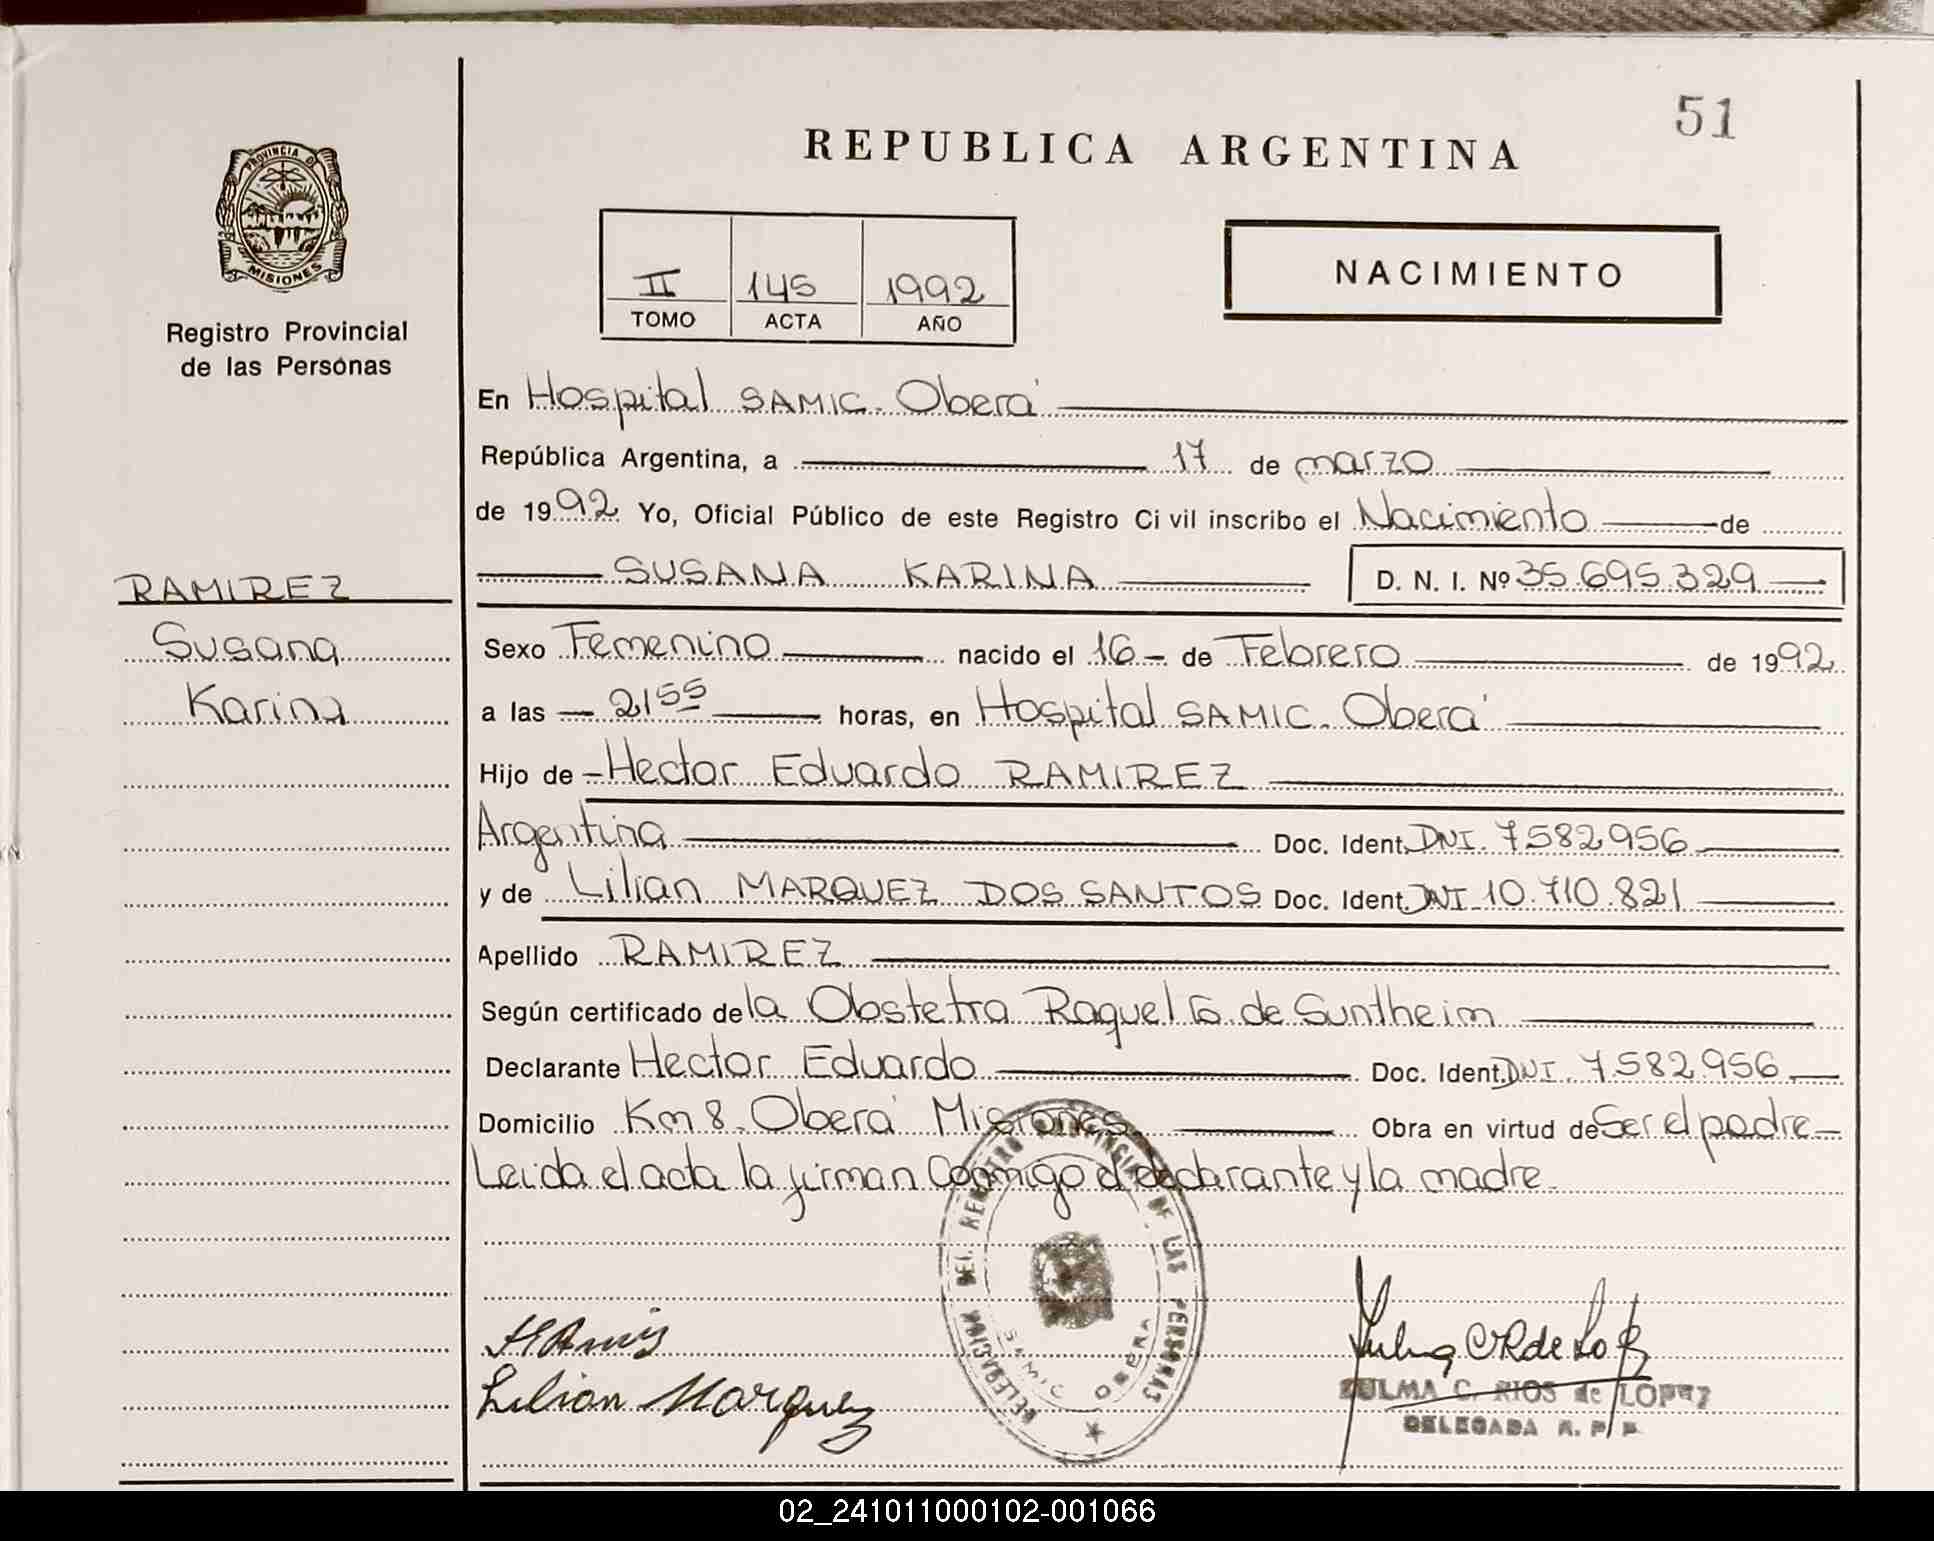 51
REPUBLICA ARGENTINA
PROVINCIA DE
MISIONES
Registro Provincial
de las Personas
II 145 1992
TOMO ACTA AÑO
NACIMIENTO
En Hospital SAMIC. Oberá
República Argentina, a 17 de marzo
de 1992 Yo, Oficial Público de este Registro Civil inscribo el Nacimiento de
SUSANA KARINA D. N. I. Nº 35.695.329
RAMIREZ
Susana
Karina
Sexo Femenino nacido el 16 de Febrero de 1992
a las 21 55 horas, en Hospital SAMIC. Oberá
Hijo de Hector Eduardo RAMIREZ
Argentina Doc. Ident. DNI. 7.582.956
y de Lilian MARQUEZ DOS SANTOS Doc. Ident. DNI 10.710.821
Apellido RAMIREZ
Según certificado de la Obstetra Raquel G. de Suntheim
Declarante Hector Eduardo Doc. Ident. DNI. 7.582.956
Domicilio Km 8. Oberá Misiones Obra en virtud de Ser el padre
Leida el acta la firman Conmigo el declarante y la madre.
DELEGACION DEL REGISTRO PROVINCIAL DE LAS PERSONAS
SAMIC OBERA
Lilian Marquez
ZULMA C. RIOS de LOPEZ
DELEGADA R. P. P.
02_241011000102-001066